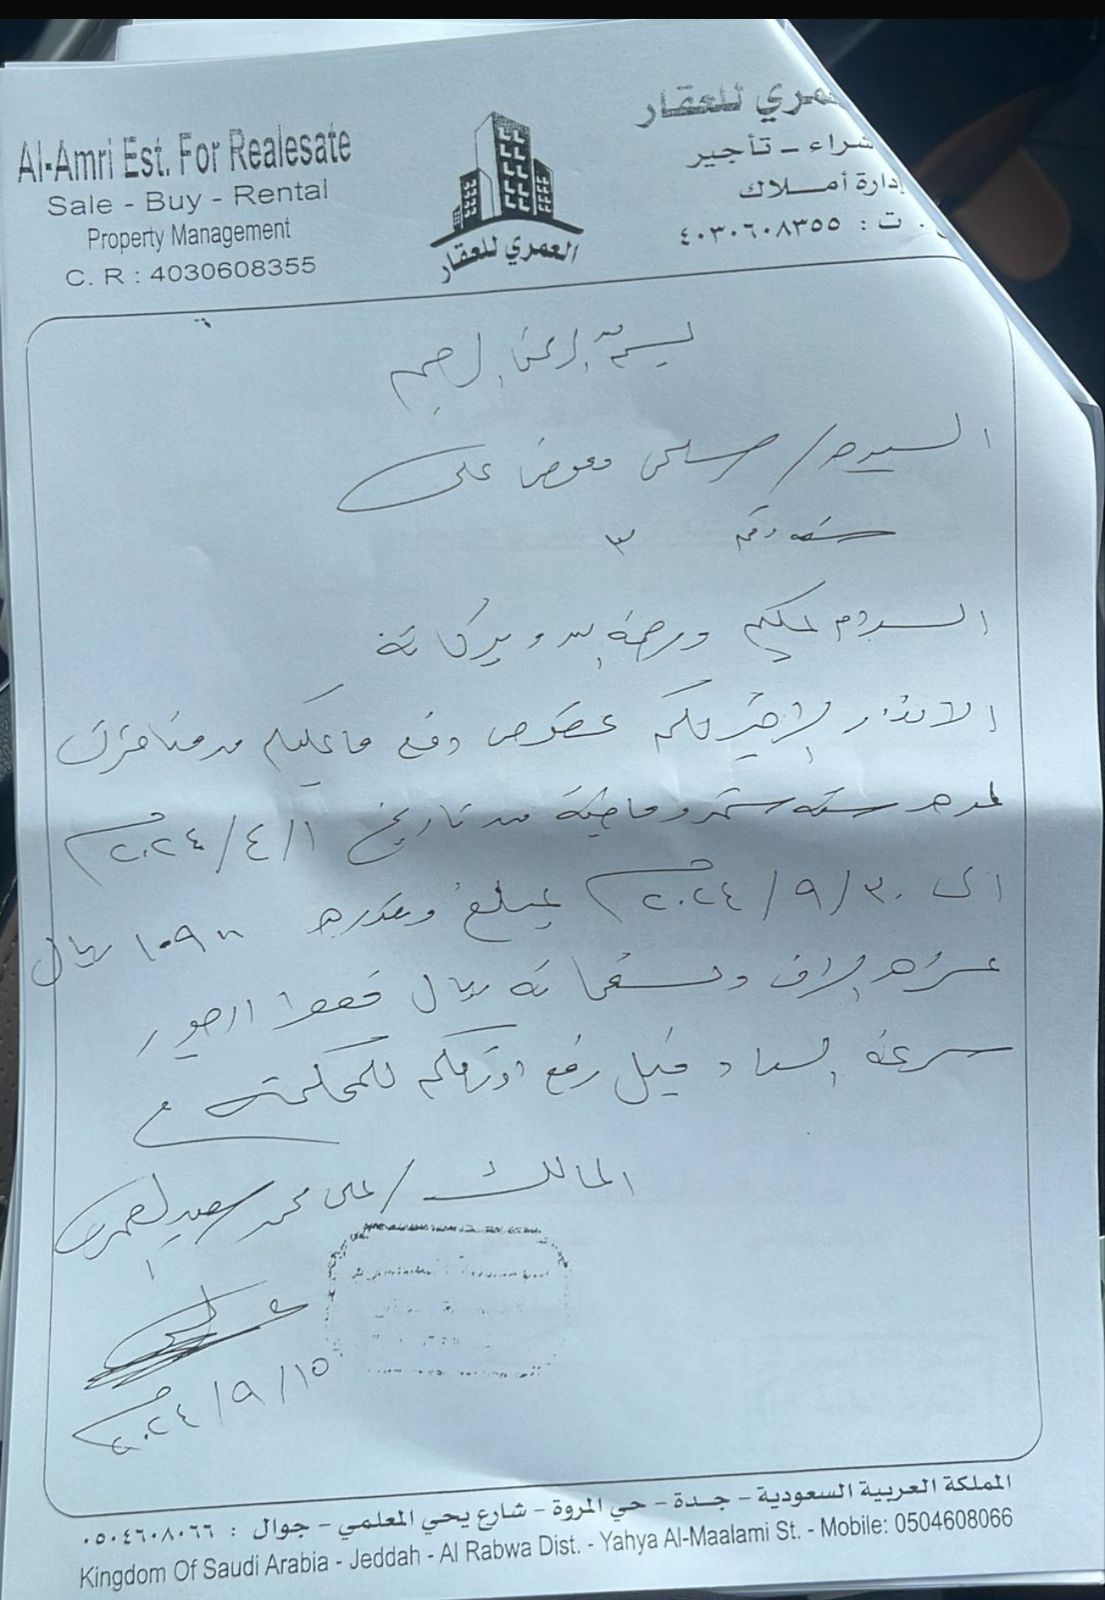 Al-Amri Est. For Realesate
Sale - Buy - Rental
Property Management
C. R : 4030608355
العمري للعقار
عمري للعقار
شراء - تأجير
إدارة أمـــلاك
ت : ٤٠٣٠٦٠٨٣٥٥
بسم الله الرحمن الرحيم
السيد / معوض علي
شقه رقم ٣
السلام عليكم ورحمة الله وبركاته
الانذار الاخير لكم بخصوص دفع ما عليكم من متاخرات
لمده سته شهور ماضية من تاريخ ١/٤/٢٠٢٤م
الى ٣٠/٩/٢٠٢٤م بمبلغ وقدره ريال
عشره الاف وتسعمائة ريال فقط ارجو
سرعة السداد قبل رفع اوراقكم للمحكمة
المالك / علي محمد سعيد العمري
١٥/٩/٢٠٢٤م
المملكة العربية السعودية - جـدة - حي المروة - شارع يحي المعلمي - جوال : ٠٥٠٤٦٠٨٠٦٦
Kingdom Of Saudi Arabia - Jeddah - Al Rabwa Dist. - Yahya Al-Maalami St. - Mobile: 0504608066